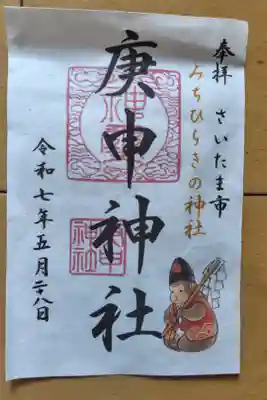 奉拝 さいたま市
みちひらきの神社
庚申神社
令和七年五月二十八日